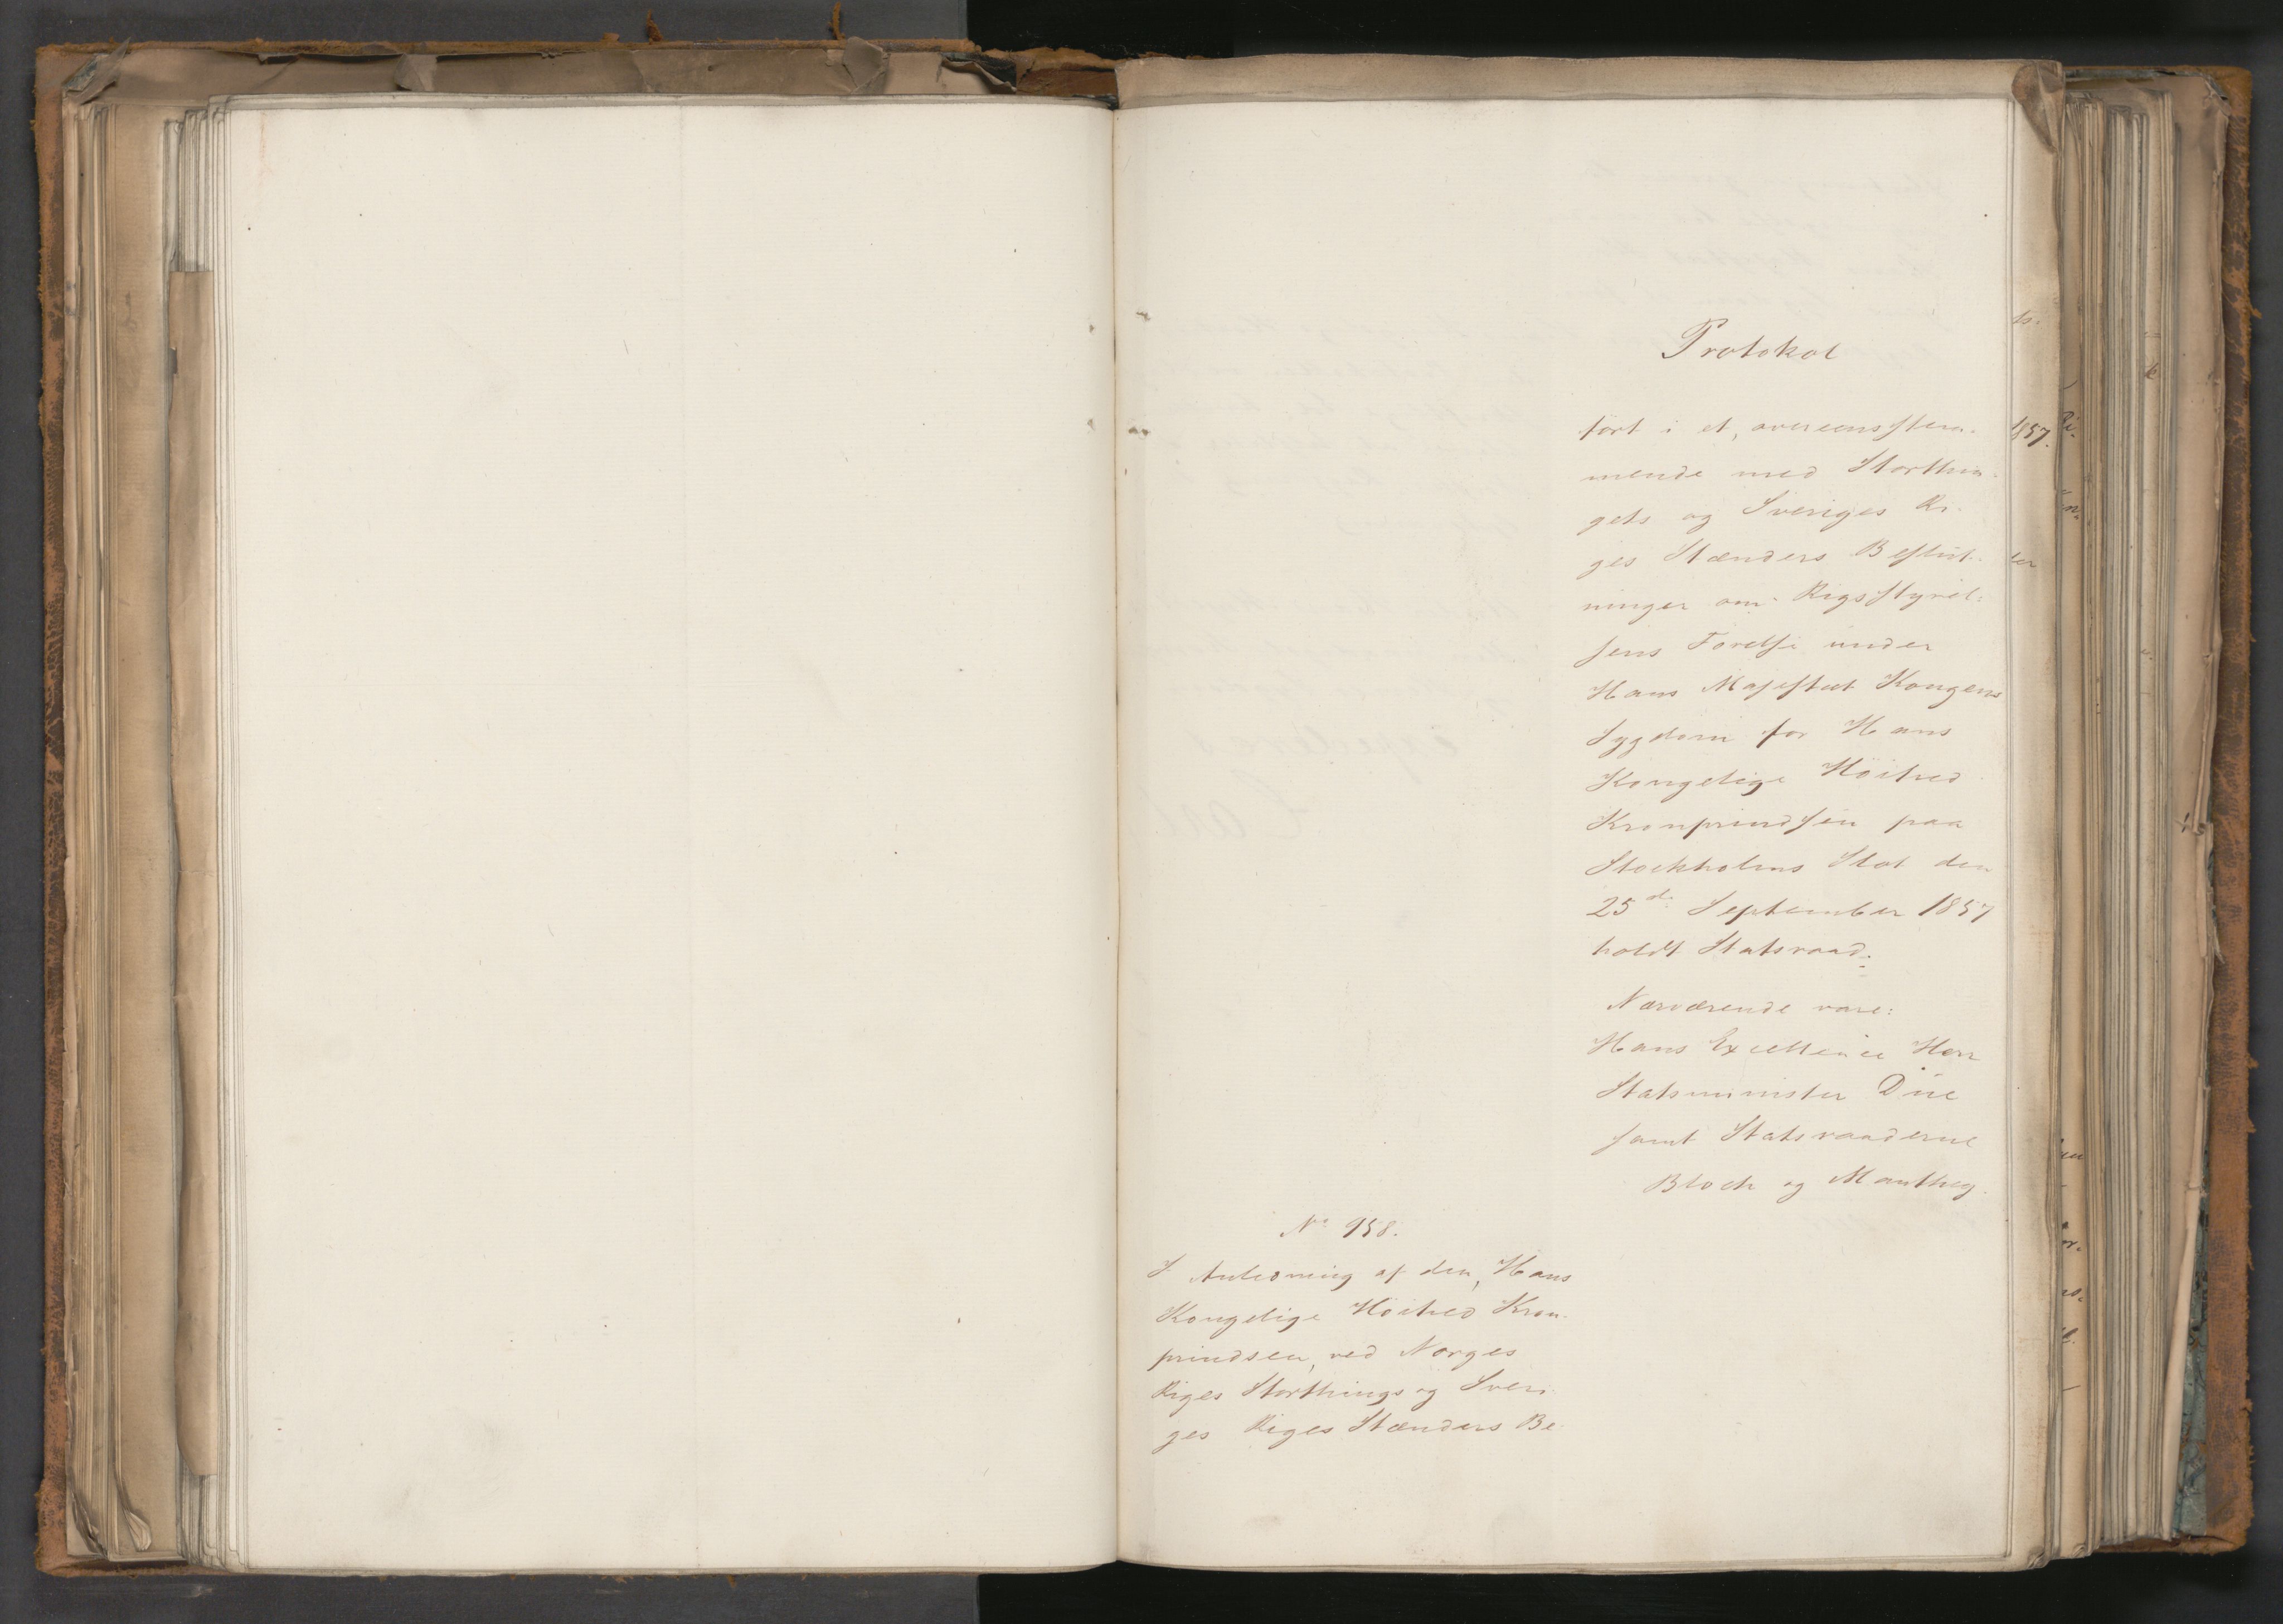 Protokol
ført i et, overeensstem-
mende med Storthin-
gets og Sveriges Ri-
ges Stænders Beslut-
ninger om Rigsstyrel-
sens Førelse under
Hans Majestæt Kongens
Sygdom for Hans
Kongelige Höihed
Kronprindsen paa
Stockholms Slot den
25de September 1857
holdt Statsraad.
Nærværende vare:
Hans Excellence Herr
Statsminister Düe
samt Statsraaderne
Bloch og Manthey.
No 958.
I Anledning af den, Hans
Kongelige Höihed Kron-
prindsen, ved Norges
Riges Storthings og Sveri-
ges Riges Stænders Be-
1857.